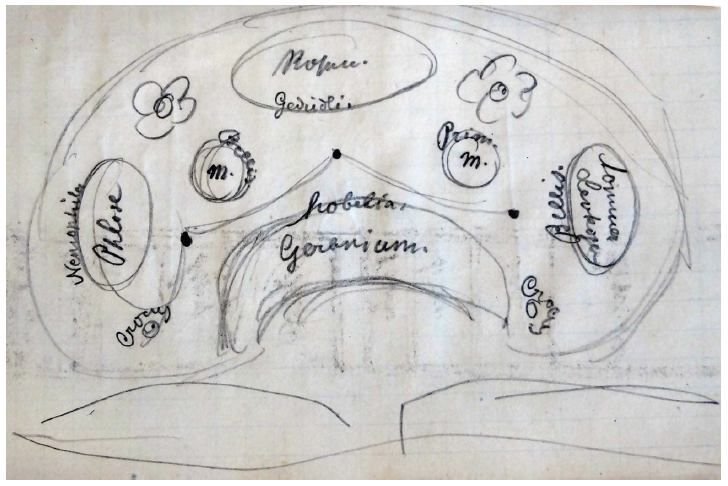 Rosen.
Bellis
m.
Prim.
m.
Nemophila
Phlox
Lobelia.
Geranium.
Bellis.
Sommer
Levkojen
Crocus
Crocus